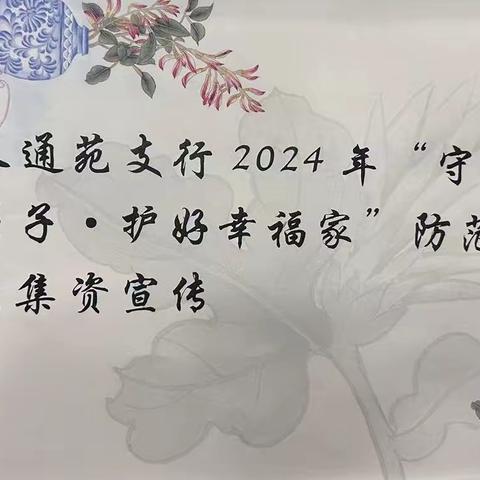 通苑支行2024年“守
子·护好幸福家”防范
集资宣传